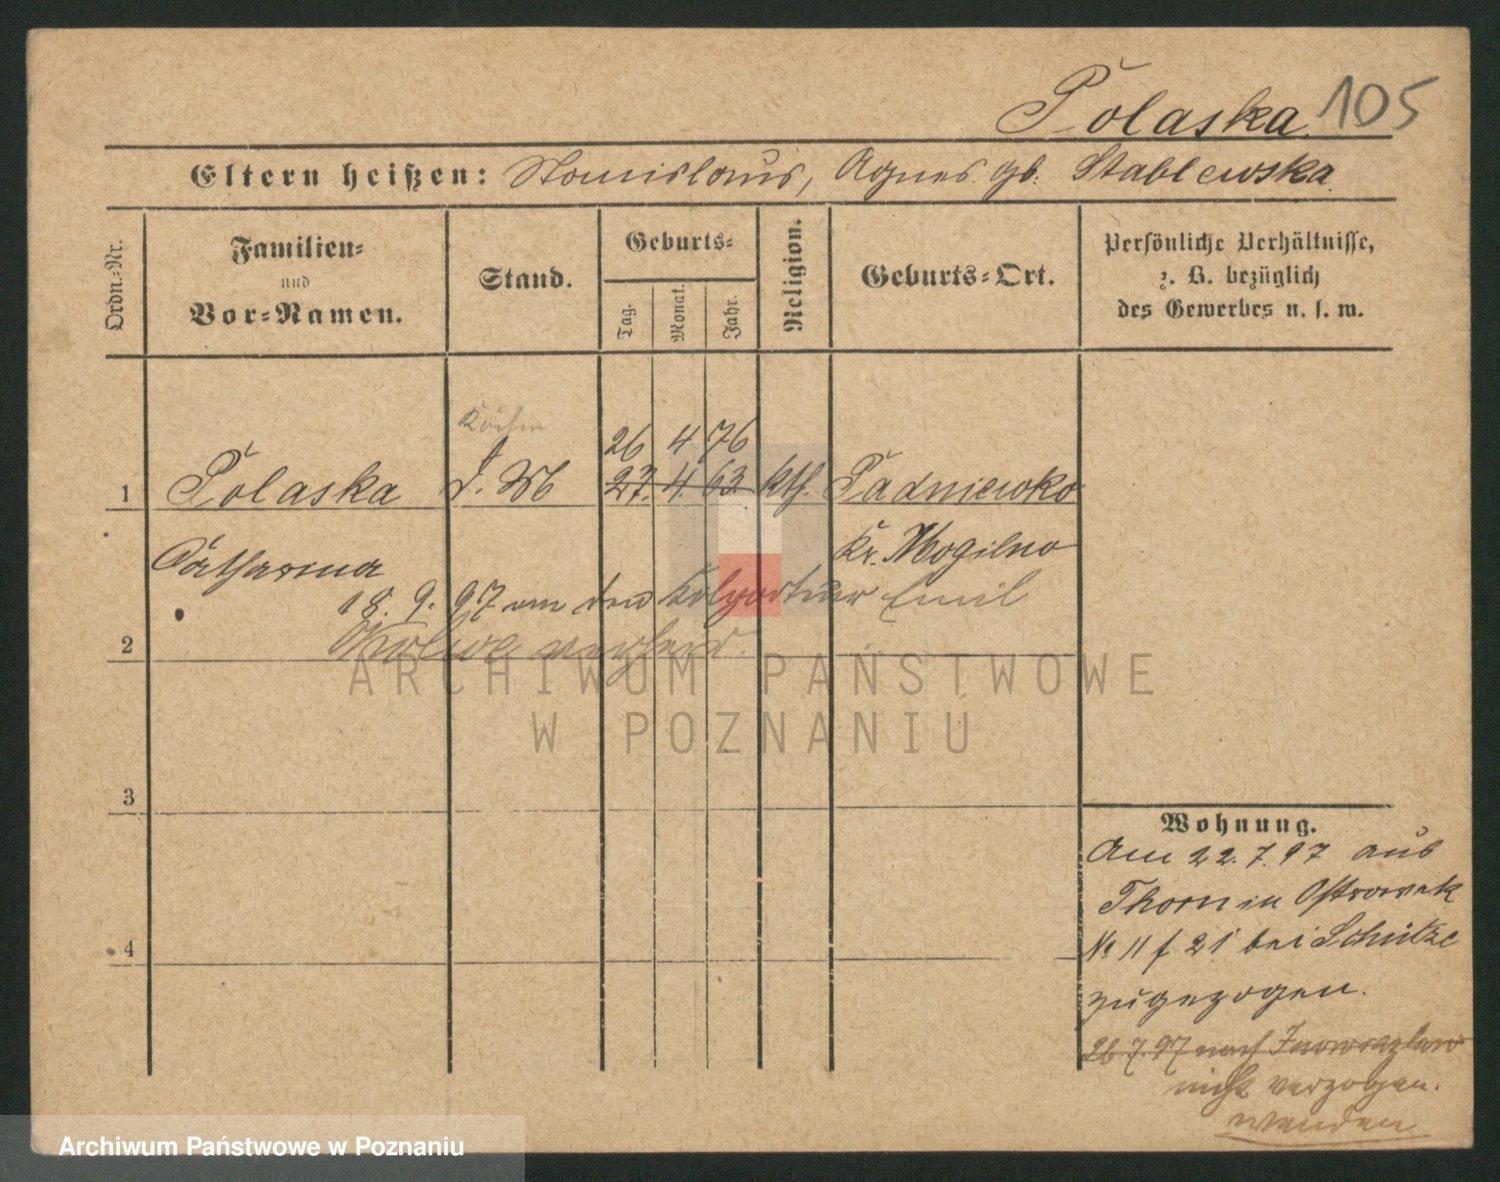 Polaska 105
Eltern heißen: Stanislaus, Agnes gb. Stablewska
Ordn.-Nr.
Familien-
und
Vor-Namen.
Stand.
Geburts-
Tag.
Monat.
Jahr.
Religion.
Geburts-Ort.
Persönliche Verhältnisse,
z. B. bezüglich
des Gewerbes u. s. w.
Köchin
26 4 76
1 Polaska 27. 4. 63. kth. Padniewko
Kr. Mogilno
Catharina
18. 9. 97 an den Kolporteur Emil
verheir.
2
3
4
Wohnung.
Am 22. 7. 97 aus
Thorn in Ostrowek
No 11 f 21 bei Schütze
zugezogen.
26 7. 97 nach Inowrazlaw
nicht verzogen.
wenden
ARCHIWUM PAŃSTWOWE
W POZNANIU
Archiwum Państwowe w Poznaniu